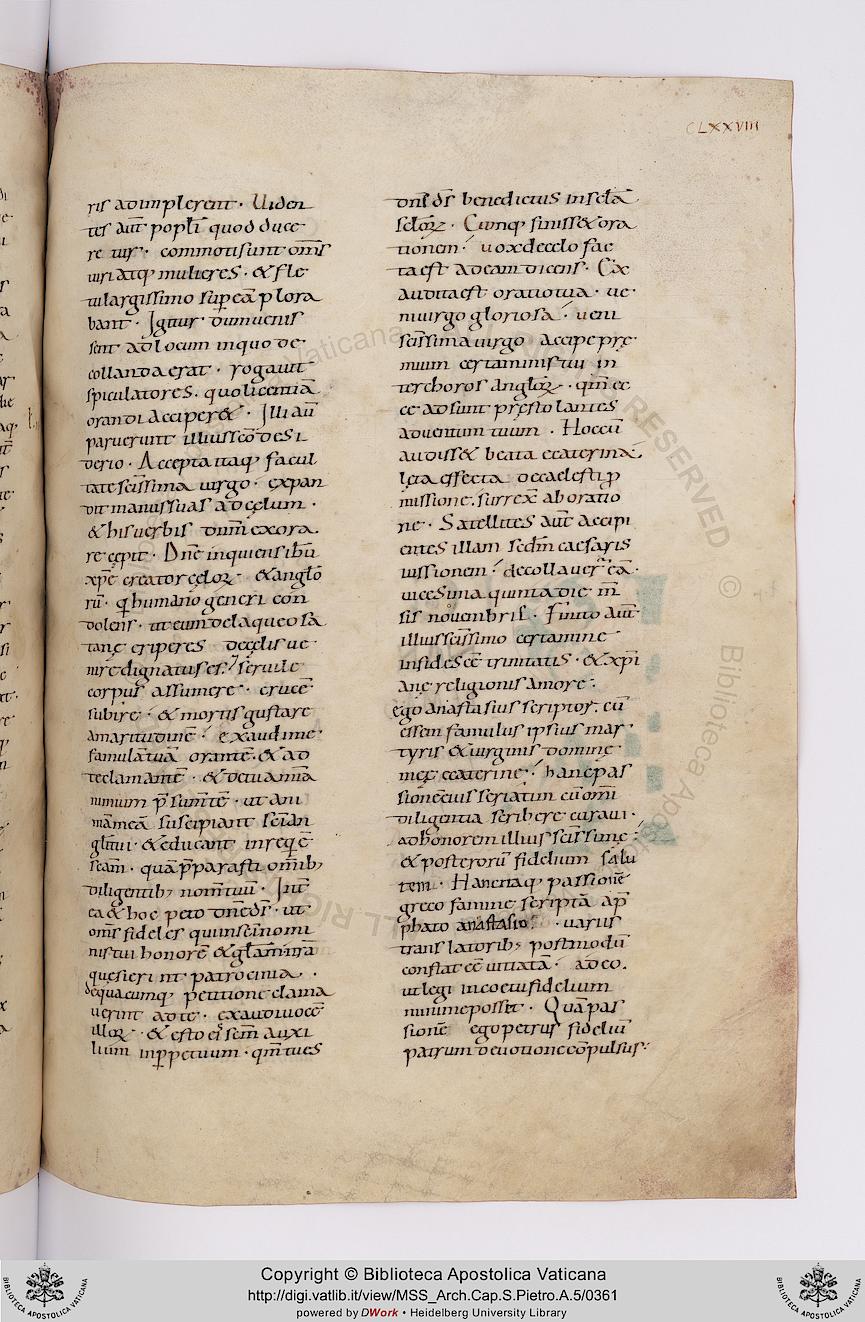 CLXXVIII
ris adimplerent · Uiden
tes aut̅ popli̅ quod duce
re tur · commoti sunt om̅s
uiri atq; mulieres · & fle
tu largissimo sup̅ ea̅ plora
bant · Igitur dum uenis
sent ad locum in quo de
collanda erat · rogauit
spiculatores · quo licentia̅
orandi acciper& · Illi au̅
paruerunt illius s̅c̅o desi
derio · Accepta itaq; facul
tate sc̅issima uirgo · expan
dit manus suas ad cęlum ·
& his uerbis dnm̅ exora
re cępit · Dn̅e inquiens ihu̅
xp̅e creator cęloꝝ · & anglo̅
ru̅ · q humano generi con
dolens · ut eum de laqueo sa
tanę eriperes de cęlis ue
nire dignatus es · seruile
corpus assumere · cruce̅
subire · & mortis gustare
amaritudine̅ · exaudi me
famula̅ tua̅ orante̅ · & ad
te clamante̅ · & de tua mia̅
nimium p̅sumte̅ · ut ani
ma̅ mea̅ suscipiant sc̅i an
gli̅ tui · & educant in reque̅
sc̅am · qua̅ p̅parasti omib;
diligentib; nom̅ tuu̅ · Int̅
ea & hoc peto dn̅e ds̅ · ut
om̅s fideles qui in sc̅i nomi
nis tui honore̅ & glam̅ mr̅a
quęsierint patrocinia ·
de quacumq; petitione clama
uerint ad te · exaudi uoce̅
illoꝝ · & esto eis sem̅ auxi
lium in ꝑpetuum · qm̅ tu es
dn̅s ds̅ benedictus in sc̅la
sc̅loꝝ · Cumq; finiss& ora
tionem · uox de cęlo fac
ta est ad eam dicens · Ex
audita est oratio tua · ue
ni uirgo gloriosa · ueni
sc̅issima uirgo accipe prę
mium certaminis tui in
ter choros angloꝝ · qm̅ ec
ce adsunt pręstolantes
aduentum tuum · Hoc cu̅
audiss& beata ecaterina
lęta effecta de caelesti ꝓ
missione · surrex̅ ab oratio
ne · Satellites aut̅ accipi
entes illam secdm̅ caesaris
iussionem · decollauer̅ ea̅ ·
uicesima quinta die m̅
sis nouembris · Finito aut̅
illius sc̅issimo certamine
in fide sc̅ę trinitatis · & xp̅i
anę religionis amore ·
ego anastasius scriptor · cu̅
essem famulus ipsius mar
tyris & uirginis dominę
meę ecaterinę · hanc pas
sione̅ eius seriatim cu̅ omi̅
diligentia scribere curaui ·
ad honorem illius sc̅issimę
& posteroru̅ fidelium salu
tem · Hanc itaq; passione̅
greco famine scripta̅ ap̅
phato anastasio · uariis
translatorib; postmodu̅
constat ee̅ uitiata̅ · adeo
ut legi in coetu fidelium
minime posset · Qua̅ pas
sione̅ ego petrus fideliu̅
patrum deuotione co̅pulsus ·
Copyright © Biblioteca Apostolica Vaticana
http://digi.vatlib.it/view/MSS_Arch.Cap.S.Pietro.A.5/0361
powered by DWork • Heidelberg University Library
BIBLIOTECA APOSTOLICA VATICANA
BIBLIOTECA APOSTOLICA VATICANA